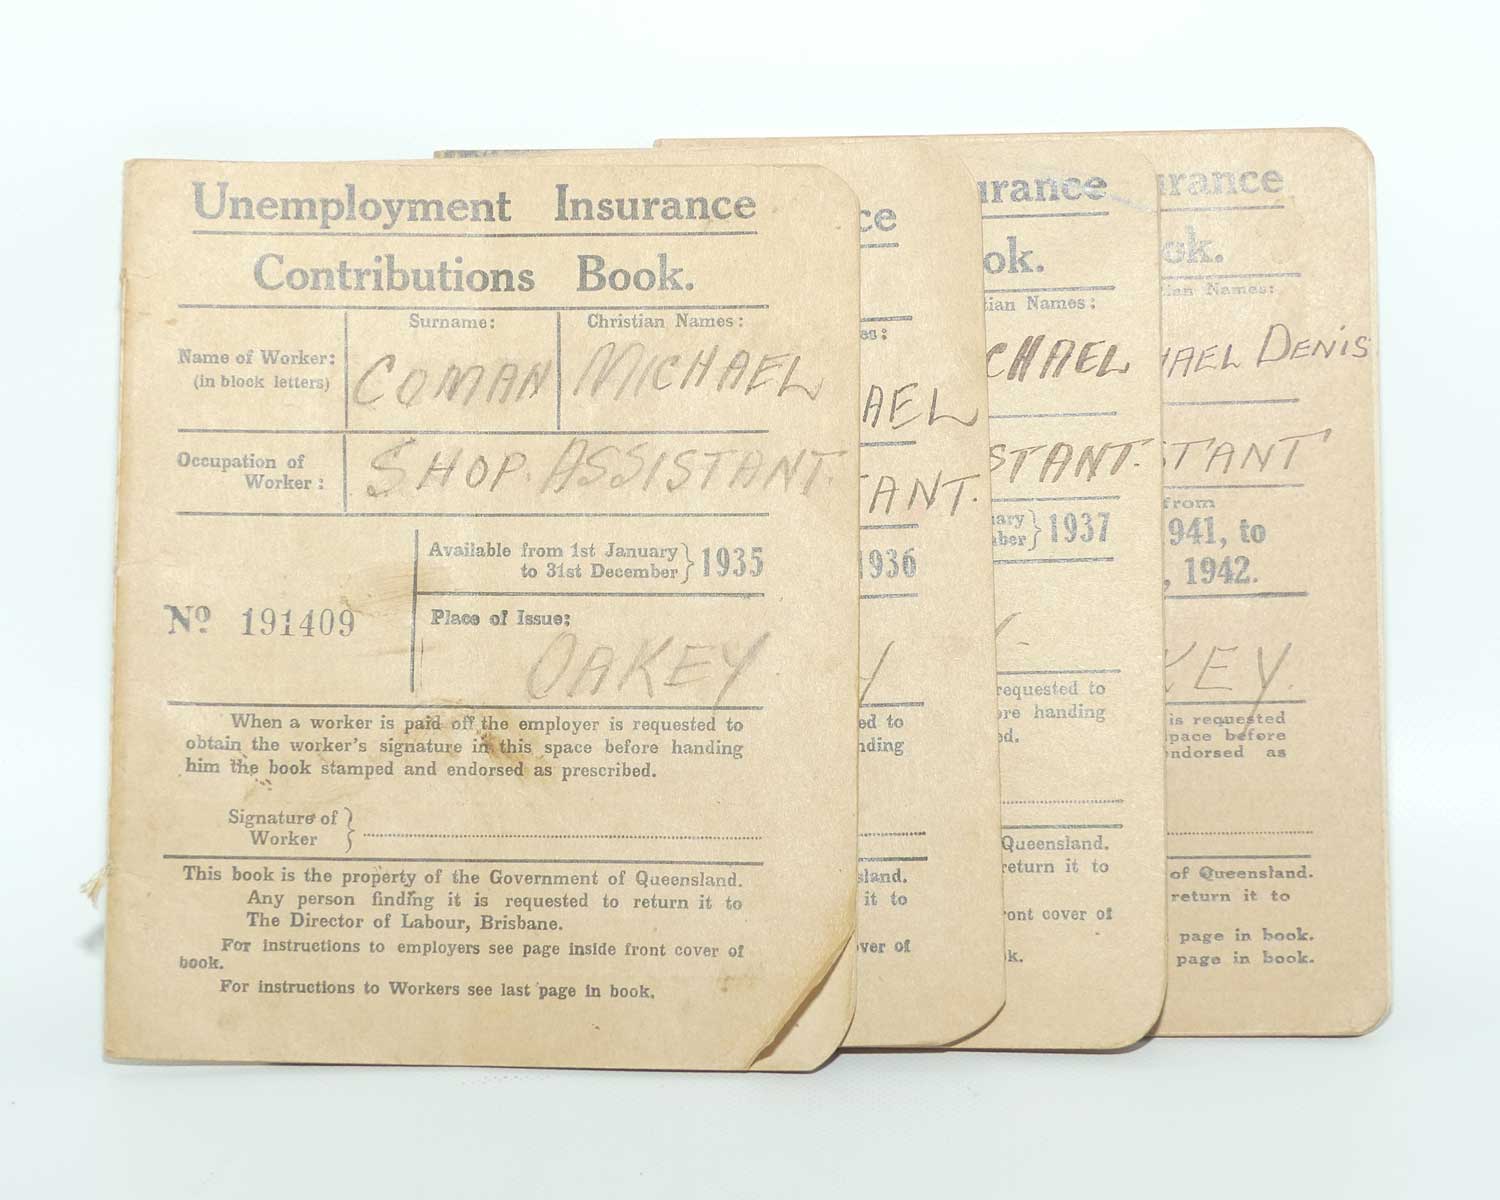 Unemployment Insurance
Contributions Book.
Surname: Christian Names:
Name of Worker: (in block letters) COMAN MICHAEL
Occupation of Worker: SHOP. ASSISTANT.
Available from 1st January to 31st December } 1935
No 191409
Place of Issue:
OAKEY
When a worker is paid off the employer is requested to
obtain the worker's signature in this space before handing
him the book stamped and endorsed as prescribed.
Signature of Worker }
This book is the property of the Government of Queensland.
Any person finding it is requested to return it to
The Director of Labour, Brisbane.
For instructions to employers see page inside front cover of
book.
For instructions to Workers see last page in book.
ce
es:
AEL
TANT.
1936
Y
ed to
nding
sland.
it to
ver of
urance
ok.
tian Names:
CHAEL
STANT.
ary
ber } 1937
requested to
ore handing
ed.
Queensland.
return it to
ront cover of
k.
urance
ok.
tian Names:
HAEL DENIS
STANT
from
941, to
, 1942.
KEY.
is requested
space before
endorsed as
of Queensland.
return it to
page in book.
page in book.